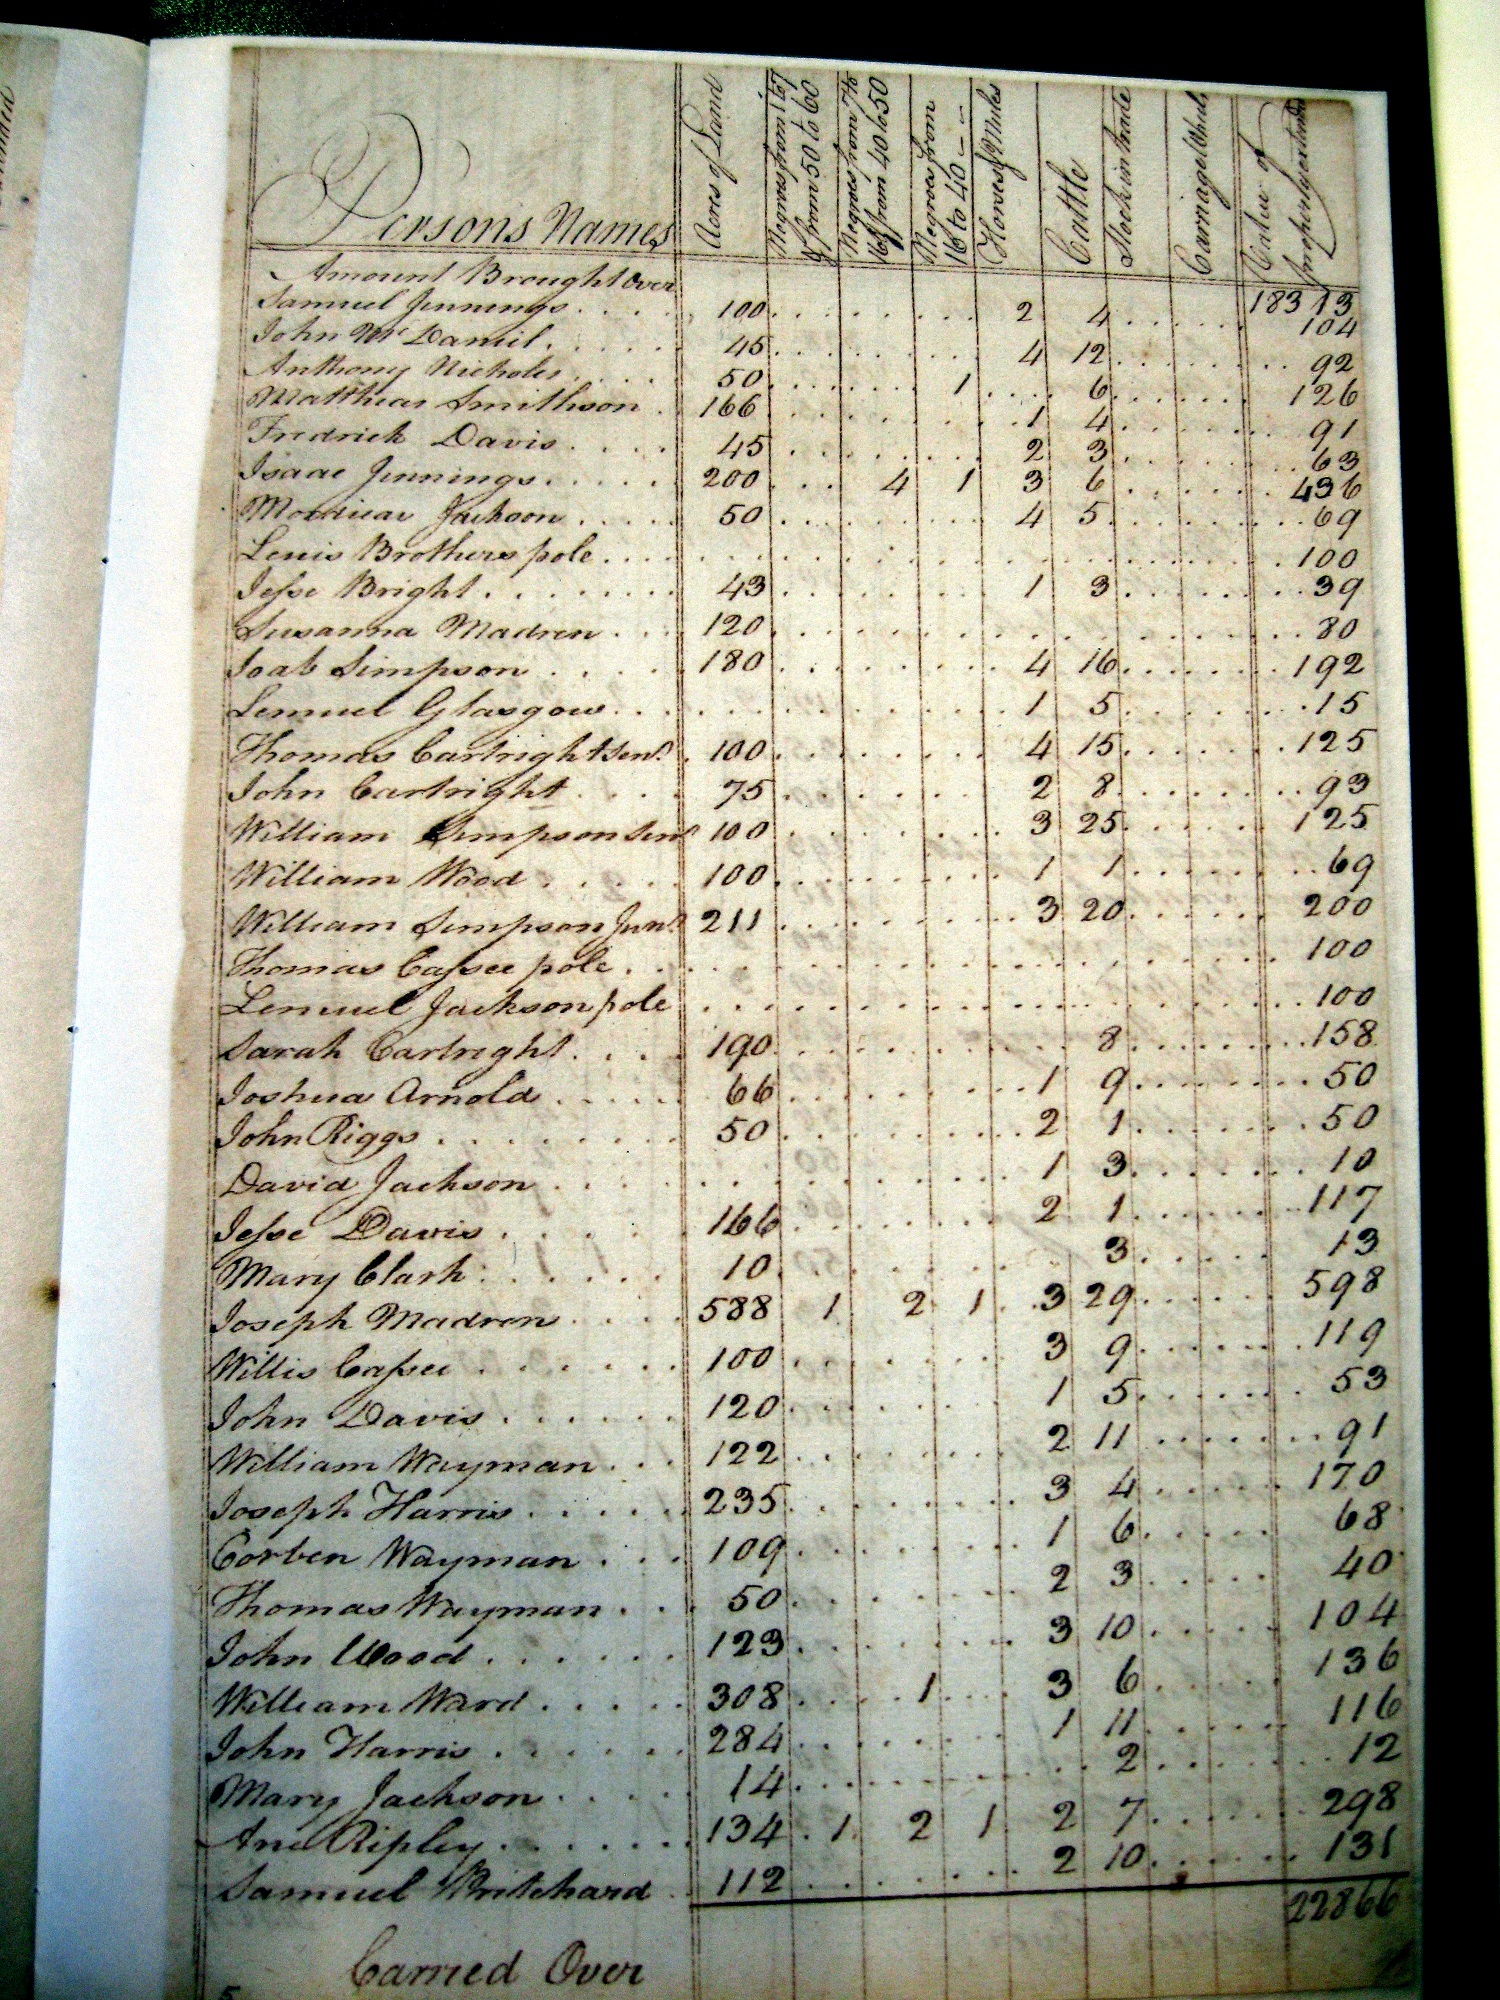 Persons Names | Acres of Land | Negroes from 1 to 7 & from 50 to 60 | Negroes from 7 to 16 & from 40 to 50 | Negroes from 16 to 40 - - | Horses & Mules | Cattle | Stock in trade | Carriage Wheels | Value of property
Amount Brought Over 18313
Samuel Jennings 100 2 4 104
John Mc Daniel 45 4 12 92
Anthony Nicholes 50 1 6 126
Matthias Smithson 166 1 4 91
Fredrick Davis 45 2 3 63
Isaac Jennings 200 4 1 3 6 436
Mordicai Jackson 50 4 5 69
Lewis Brothers pole 100
Jesse Bright 43 1 3 39
Susanna Madren 120 80
Joab Simpson 180 4 16 192
Lemuel Glasgow 1 5 15
Thomas Cartright Senr 100 4 15 125
John Cartright 75 2 8 93
William Simpson Senr 100 3 25 125
William Wood 100 1 1 69
William Simpson Junr 211 3 20 200
Thomas Cassee pole 100
Lemuel Jackson pole 100
Sarah Cartright 190 8 158
Joshua Arnold 66 1 9 50
John Riggs 50 2 1 50
David Jackson 1 3 10
Jesse Davis 166 2 1 117
Mary Clark 10 3 13
Joseph Madren 588 1 2 1 3 29 598
Willis Cassee 100 3 9 119
John Davis 120 1 5 53
William Wayman 122 2 11 91
Joseph Harris 235 3 4 170
Corben Wayman 109 1 6 68
Thomas Wayman 50 2 3 40
John Wood 123 3 10 104
William Ward 308 1 3 6 136
John Harris 284 1 11 116
Mary Jackson 14 2 12
Ane Ripley 134 1 2 1 2 7 298
Samuel Pritchard 112 2 10 131
22866
Carried Over